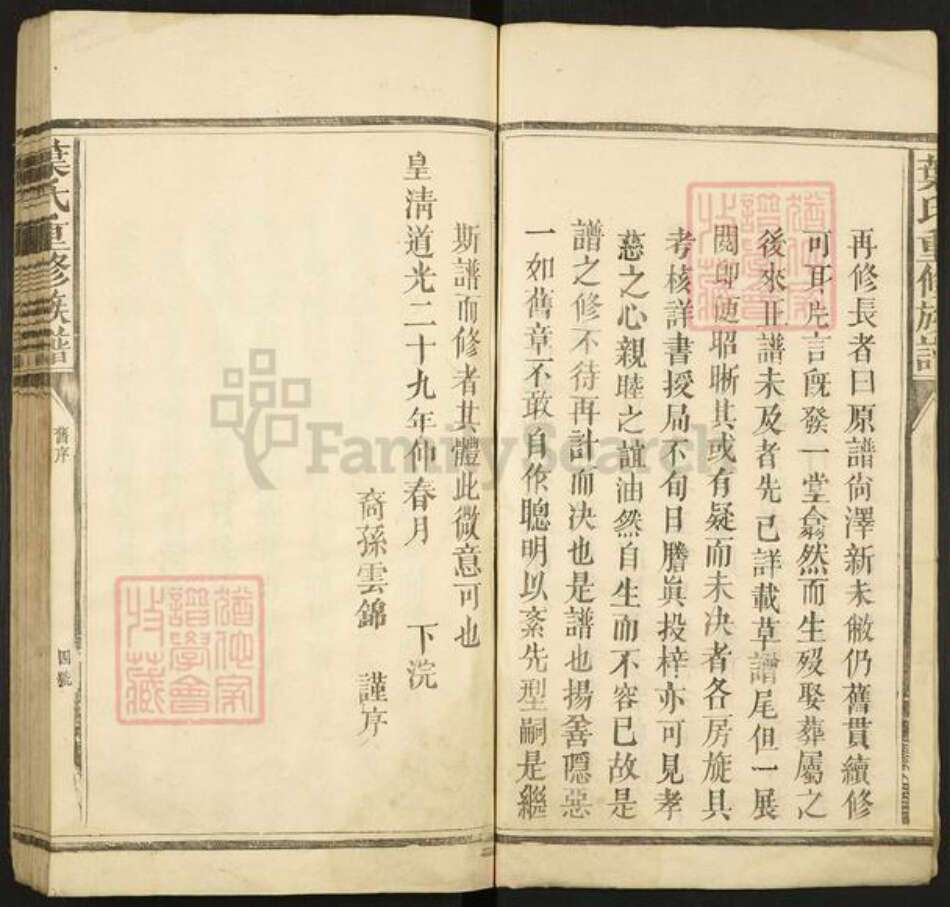 葉氏重修族譜
再修長者曰原譜尚澤新未敝仍舊貫續修
可耳片言旣發一堂翕然而生歿娶葬屬之
後來正譜未及者先已詳載草譜尾但一展
閱卽通昭晰其或有疑而未决者各房旋具
考核詳書授局不旬日謄眞投梓亦可見孝
慈之心親睦之誼油然自生而不容已故是
譜之修不待再計而决也是譜也揚善隱惡
一如舊章不敢自作聰明以紊先型嗣是繼
斯譜而修者其體此微意可也
皇淸道光二十九年仲春月 下浣
裔孫雲錦 謹序
葉氏重修族譜
舊序
四號
譜學會
收藏
譜學會
收藏
FamilySearch